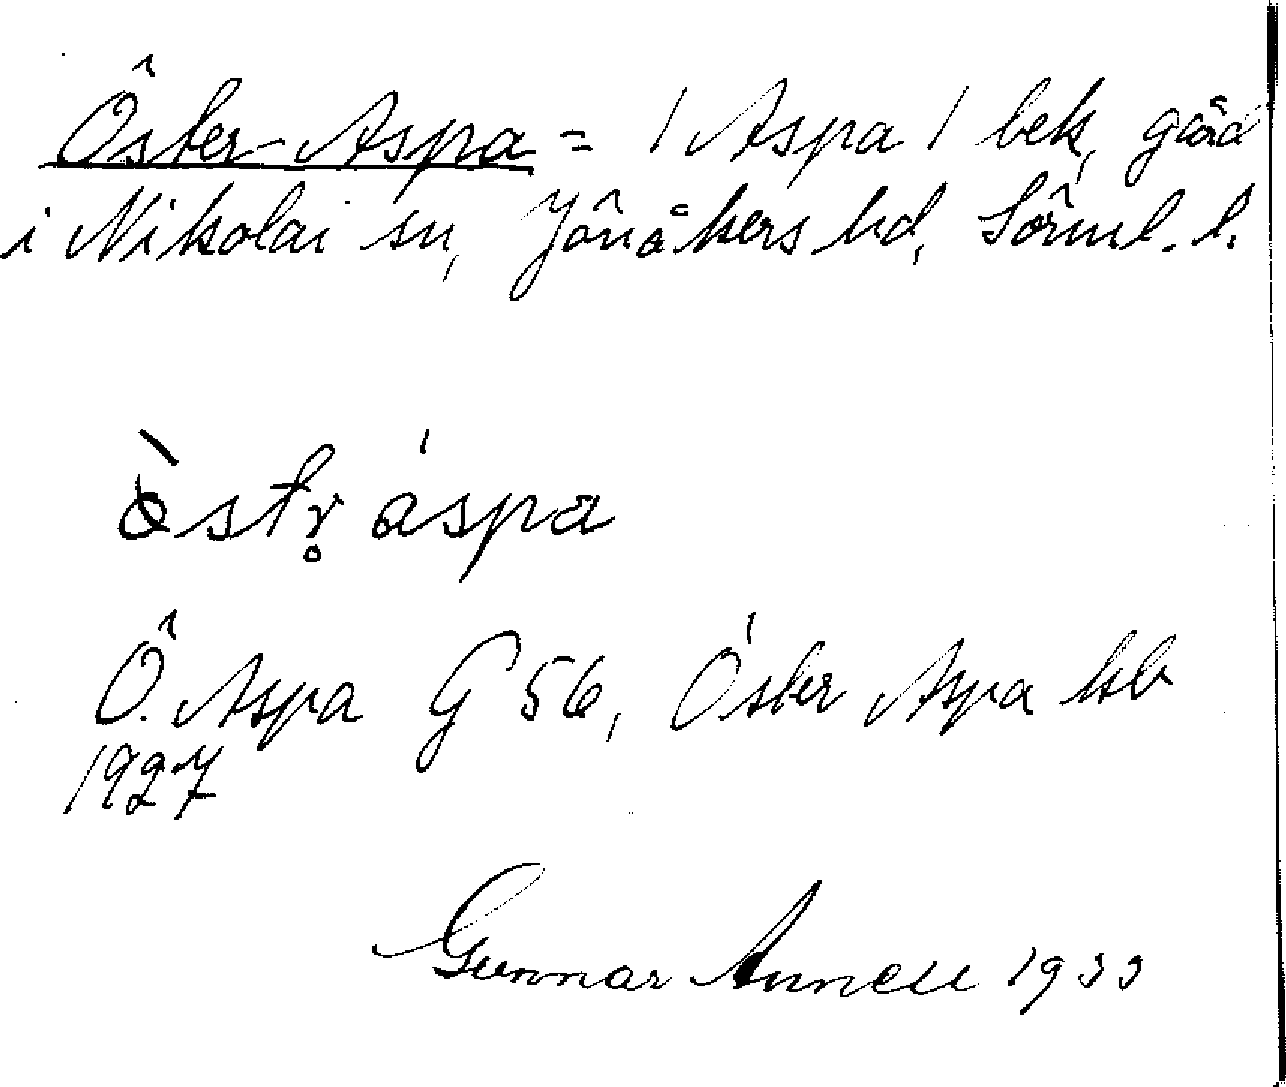 Öster-Aspa = / Aspa / bek, gård
i Nikolai sn, Jönåkers hd, Sörml. l.
ò̀str̥ áspa
Ö. Aspa G 56, Öster Aspa kb
1927
Gunnar Annell 1933